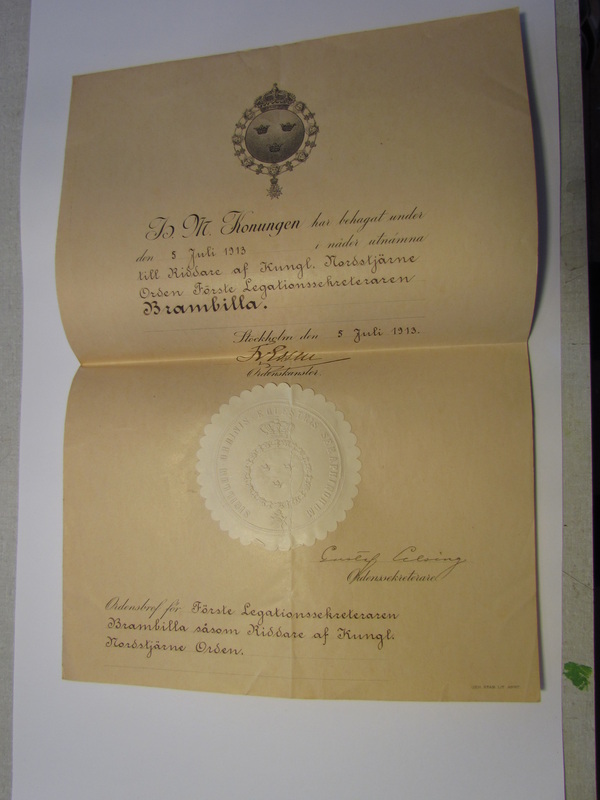 H. M. Konungen har behagat under
den 5 Juli 1913 i nåder utnämna
till Riddare af Kungl. Nordstjärne
Orden Förste Legationssekreteraren
Brambilla.
Stockholm den 5 Juli 1913.
Ordenskansler.
Gustaf
Ordenssekreterare.
Ordensbref för Förste Legationssekreteraren
Brambilla såsom Riddare af Kungl.
Nordstjärne Orden.